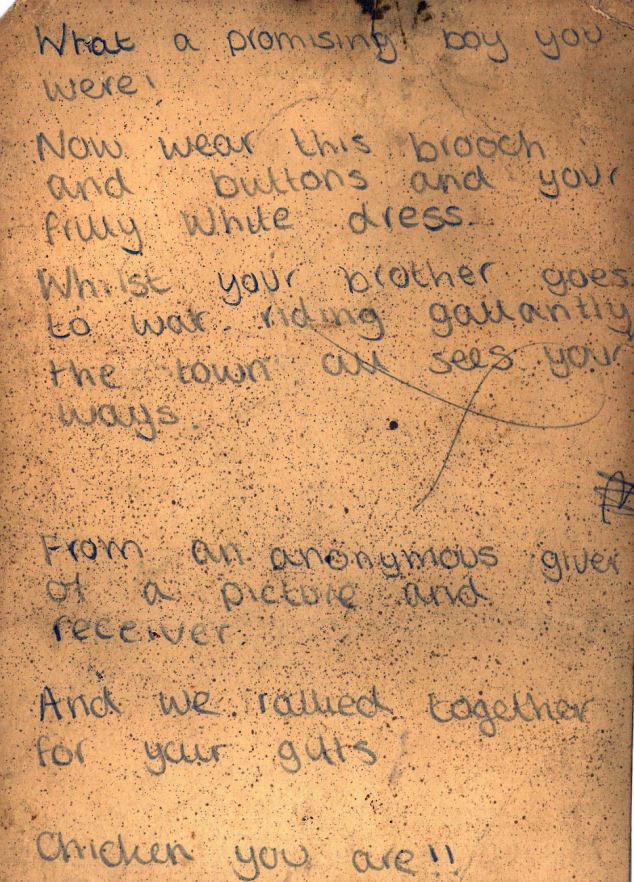 What a promising boy you
were!
Now wear this brooch
and buttons and your
frilly white dress.
Whilst your brother goes
to war riding gallantly
the town all sees your
ways.
From an anonymous giver
of a picture and
receiver.
And we rallied together
for your gifts
Chicken you are!!